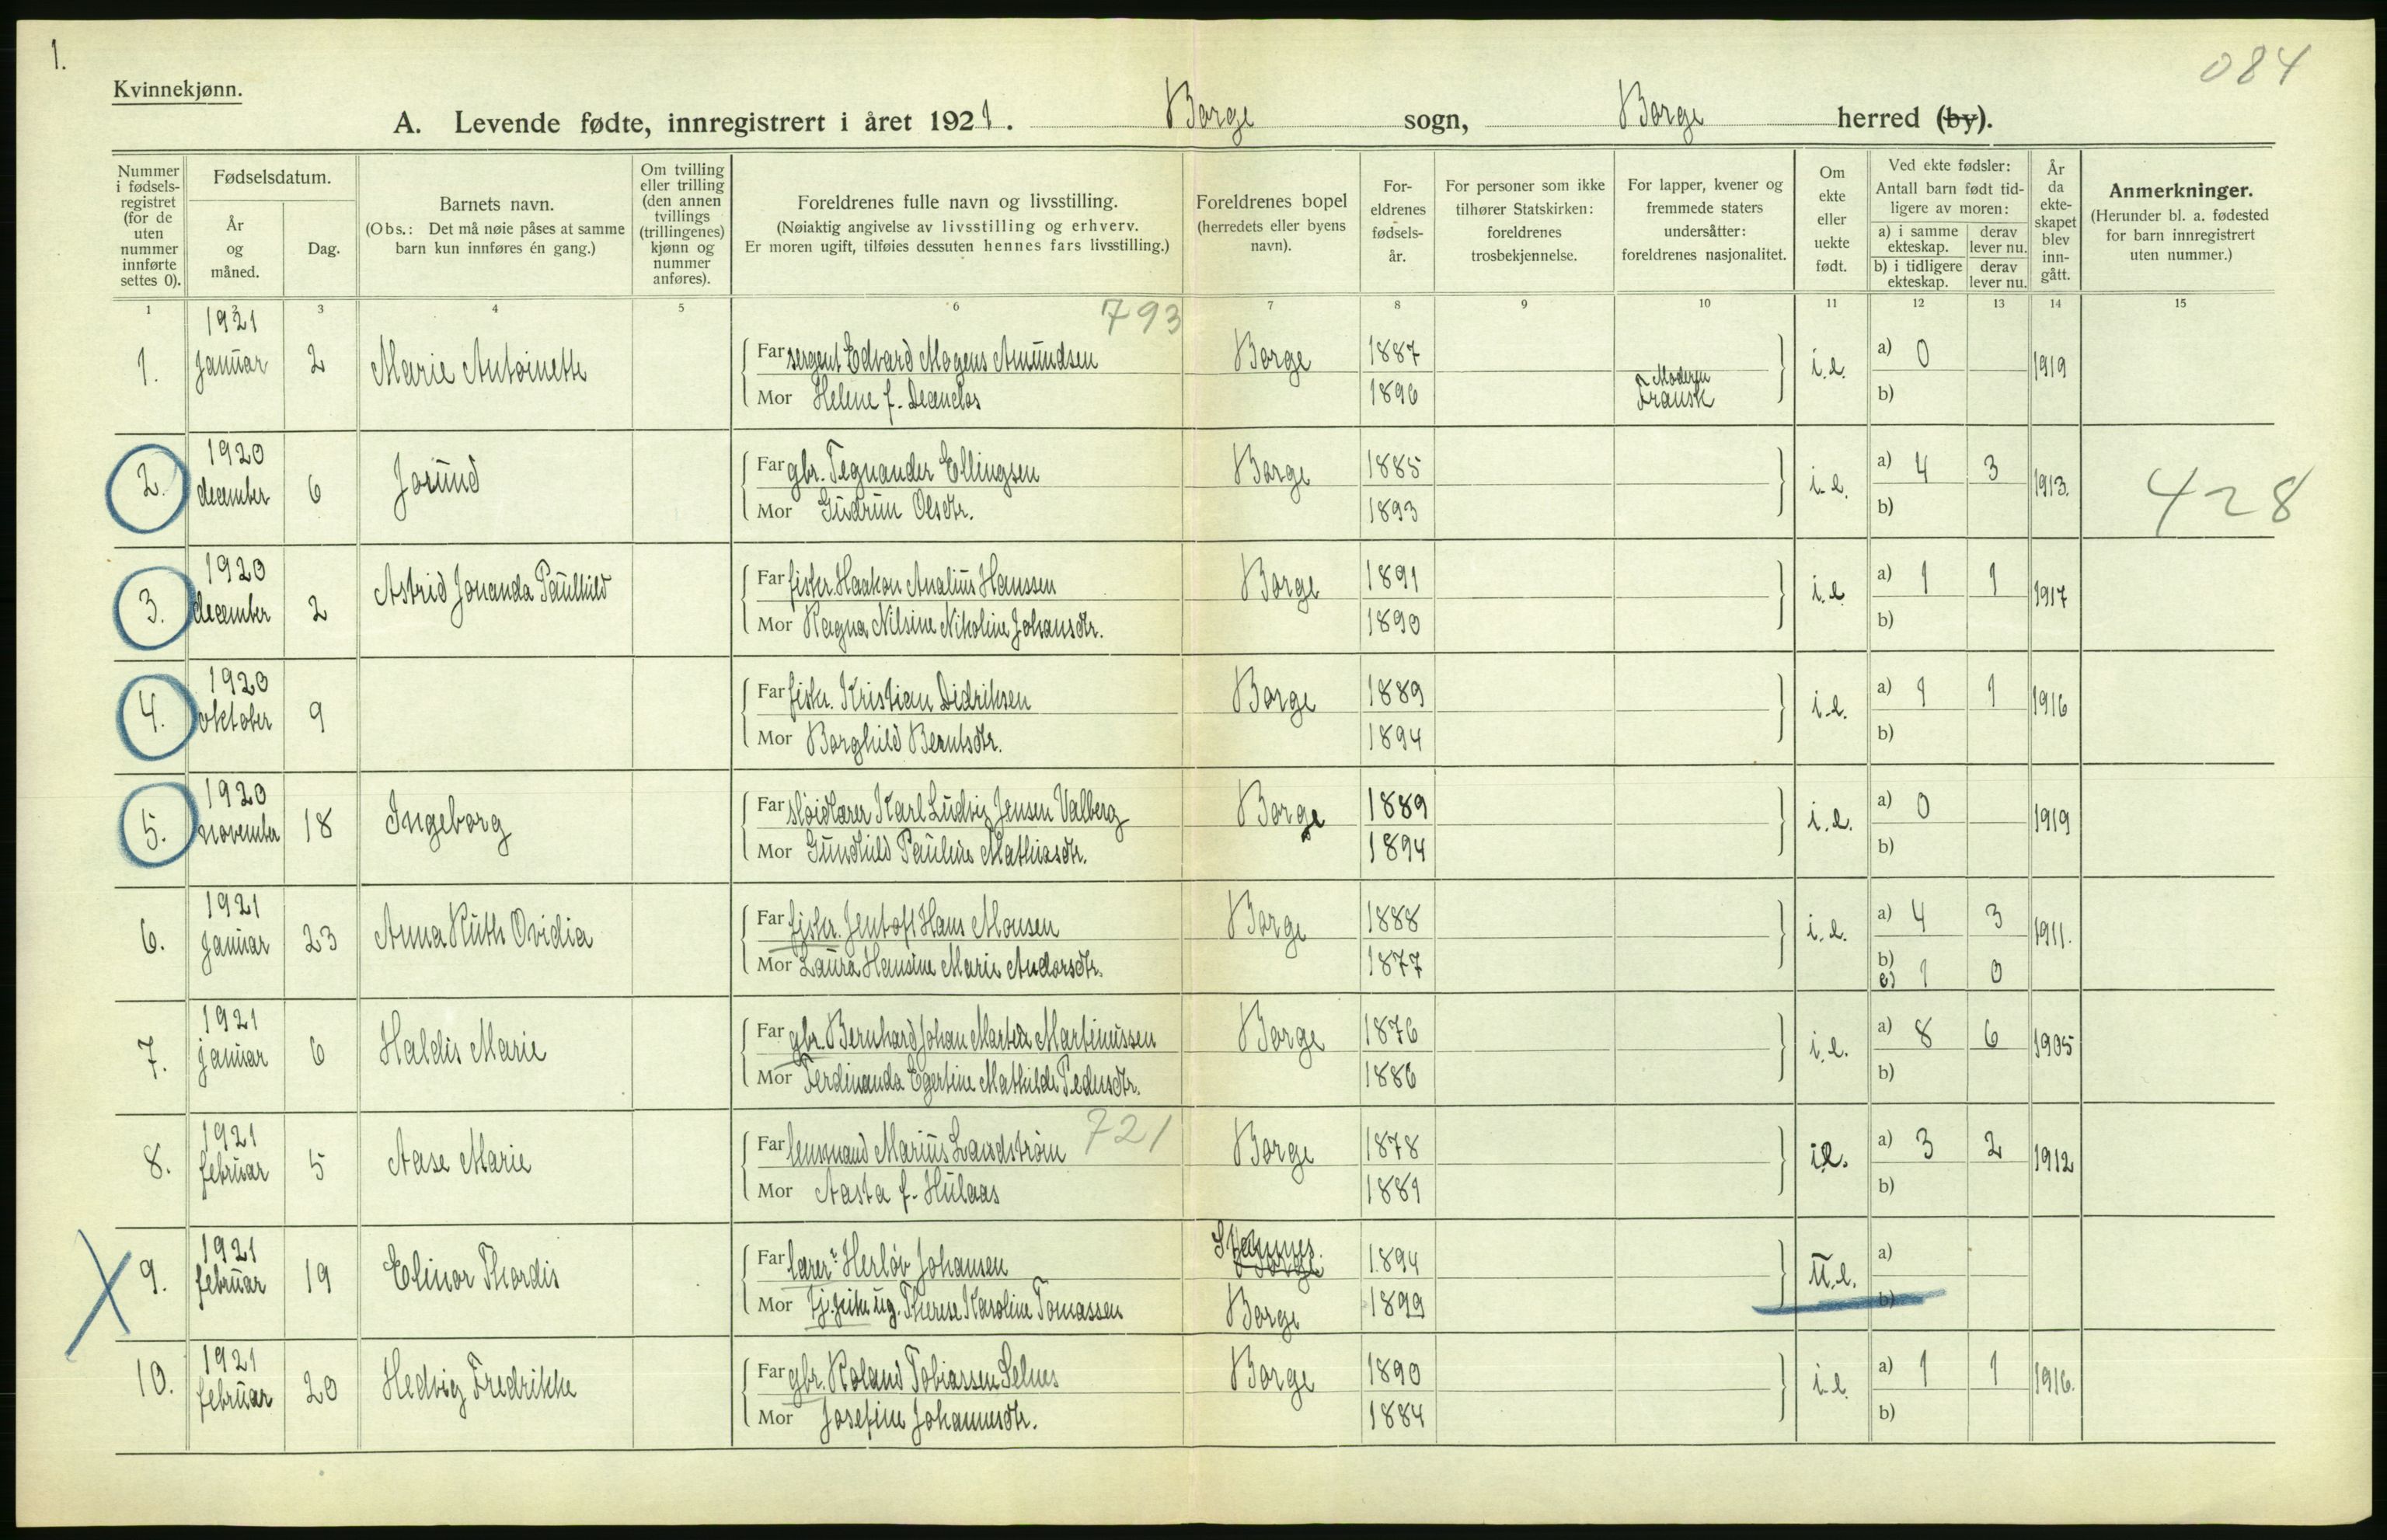 1.
084
Kvinnekjønn.
A. Levende fødte, innregistrert i året 1921. Borge sogn, Borge herred (by).
Nummer i fødsels-registret (for de uten nummer innførte settes 0).
Fødselsdatum.
År og måned.
Dag.
Barnets navn.
(Obs.: Det må nøie påses at samme barn kun innføres én gang.)
Om tvilling eller trilling (den annen tvillings (trillingenes) kjønn og nummer anføres).
Foreldrenes fulle navn og livsstilling.
(Nøiaktig angivelse av livsstilling og erhverv.
Er moren ugift, tilføies dessuten hennes fars livsstilling.)
Foreldrenes bopel
(herredets eller byens navn).
For-eldrenes fødsels-år.
For personer som ikke tilhører Statskirken: foreldrenes trosbekjennelse.
For lapper, kvener og fremmede staters undersåtter: foreldrenes nasjonalitet.
Om ekte eller uekte født.
Ved ekte fødsler:
Antall barn født tid-ligere av moren:
a) i samme ekteskap.
derav lever nu.
b) i tidligere ekteskap.
derav lever nu.
År da ekte-skapet blev inn-gått.
Anmerkninger.
(Herunder bl. a. fødested for barn innregistrert uten nummer.)
1 2 3 4 5 6 7 8 9 10 11 12 13 14 15
793
1. 1921 januar 2 Marie Antoinette
Far sergent Edvard Mogens Amundsen Borge 1887 i.e. a) 0 1919
Mor Helene f. 1896 Moderen Fransk b)
2. 1920 december 6 Jorund
Far gbr. Tegnander Ellingsen Borge 1885 i.e. a) 4 3 1913.
Mor Gudrun Olsdtr. 1893 b)
428
3. 1920 december 2 Astrid Jonanda Paulhild
Far fisker. Haakon Analius Hanssen Borge 1891 i.e. a) 1 1 1917
Mor Ragna Nilsine Nikoline Johansdtr. 1890 b)
4. 1920 oktober 9
Far fisker. Kristian Didriksen Borge 1889 i.e. a) 1 1 1916
Mor Borghild Berntsdtr. 1894 b)
5. 1920 november 18 Ingeborg
Far sløidlærer Karl Ludvig Jensen Valberg Borge 1889 i.e. a) 0 1919
Mor Gunhild Pauline Mathiasdtr. 1894 b)
6. 1921 januar 23 Anna Ruth Ovidia
Far fisker. Jentoft Hans Monsen Borge 1888 i.e. a) 4 3 1911.
Mor Laura Hansine Marie Andorsdtr. 1877 b) 1 0
7. 1921 januar 6 Haldis Marie
Far gbr. Bernhard Johan Martin Martinussen Borge 1876 i.e. a) 8 6 1905
Mor Ferdinanda Egertine Mathilde Pedersdtr. 1886 b)
721
8. 1921 februar 5 Aase Marie
Far lensmand Marius Landstrøm Borge 1878 i.e. a) 3 2 1912
Mor Aasta f. Hulaas 1881 b)
9. 1921 februar 19 Elinor Thordis
Far lærer Herløv Johansen Borge 1894 U.e. a)
Mor ug. Therese Karoline Tomassen Borge 1899 b)
10. 1921 februar 20 Hedvig Fredrikke
Far gbr. Roland Tobiassen Selnes Borge 1890 i.e. a) 1 1 1916.
Mor Josefine Johannesdtr. 1884 b)